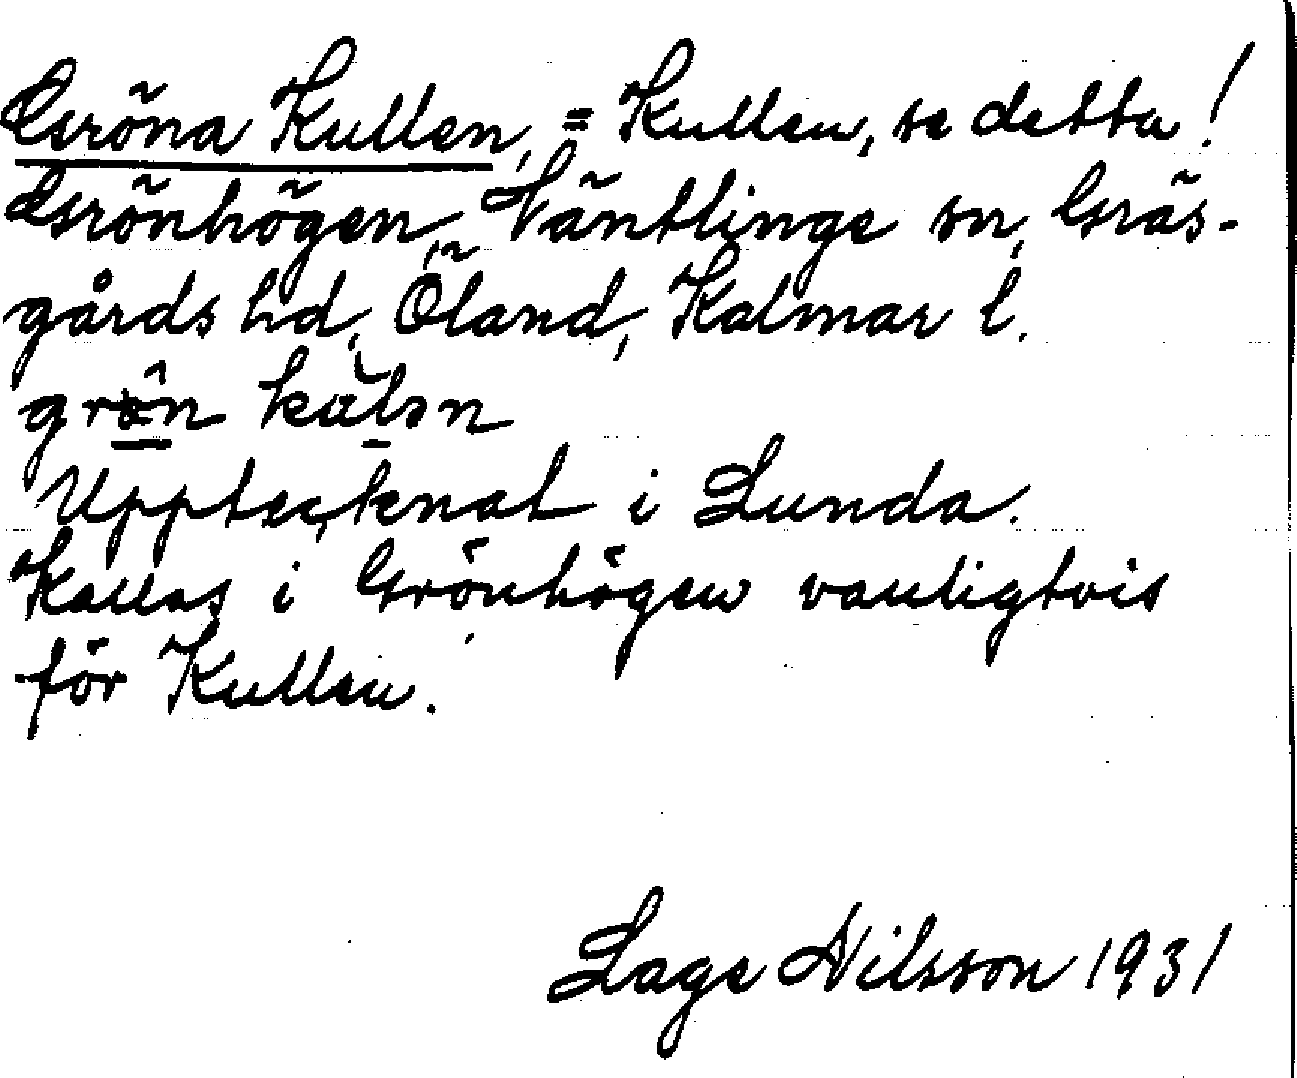 Gröna Kullen, = Kullen, se detta!
Grönhögen, Väntlinge sn, Gräs-
gårds hd, Öland, Kalmar l.
Upptecknat i Lunda.
Kallas i Grönhögen vanligtvis
för Kullen.
Lage Nilsson 1931